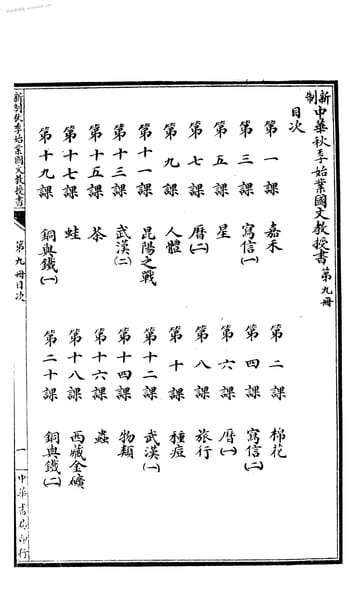 新制中華秋季始業國文教授書第九冊
目次
第一課 嘉禾
第二課 棉花
第三課 寫信(一)
第四課 寫信(二)
第五課 星
第六課 曆(一)
第七課 曆(二)
第八課 旅行
第九課 人體
第十課 種痘
第十一課 昆陽之戰
第十二課 武漢(一)
第十三課 武漢(二)
第十四課 物類
第十五課 茶
第十六課 蟲
第十七課 蛙
第十八課 西藏金礦
第十九課 銅與鐵(一)
第二十課 銅與鐵(二)
新制秋季始業國文教授書
第九冊目次
一
中華書局印行